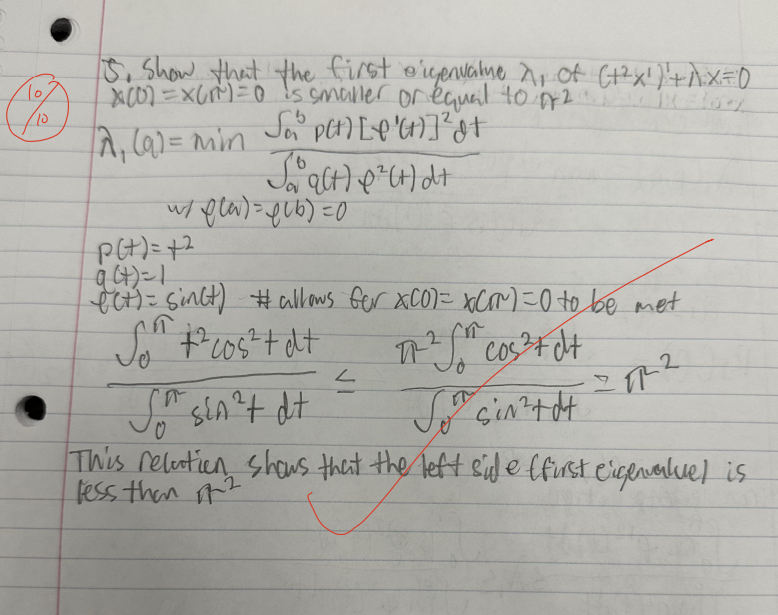 10/10
5. Show that the first eigenvalue λ₁ of (t²x')' + λx = 0
x(0) = x(π) = 0 is smaller or equal to π²
λ₁(q) = min ∫ₐᵇ p(t)[φ'(t)]² dt / ∫ₐᵇ q(t) φ²(t) dt
w/ φ(a) = φ(b) = 0
p(t) = t²
q(t) = 1
φ(t) = sin(t) # allows for x(0) = x(π) = 0 to be met
∫₀^π t² cos² t dt / ∫₀^π sin² t dt ≤ π² ∫₀^π cos² t dt / ∫₀^π sin² t dt = π²
This relation shows that the left side (first eigenvalue) is
less than π²